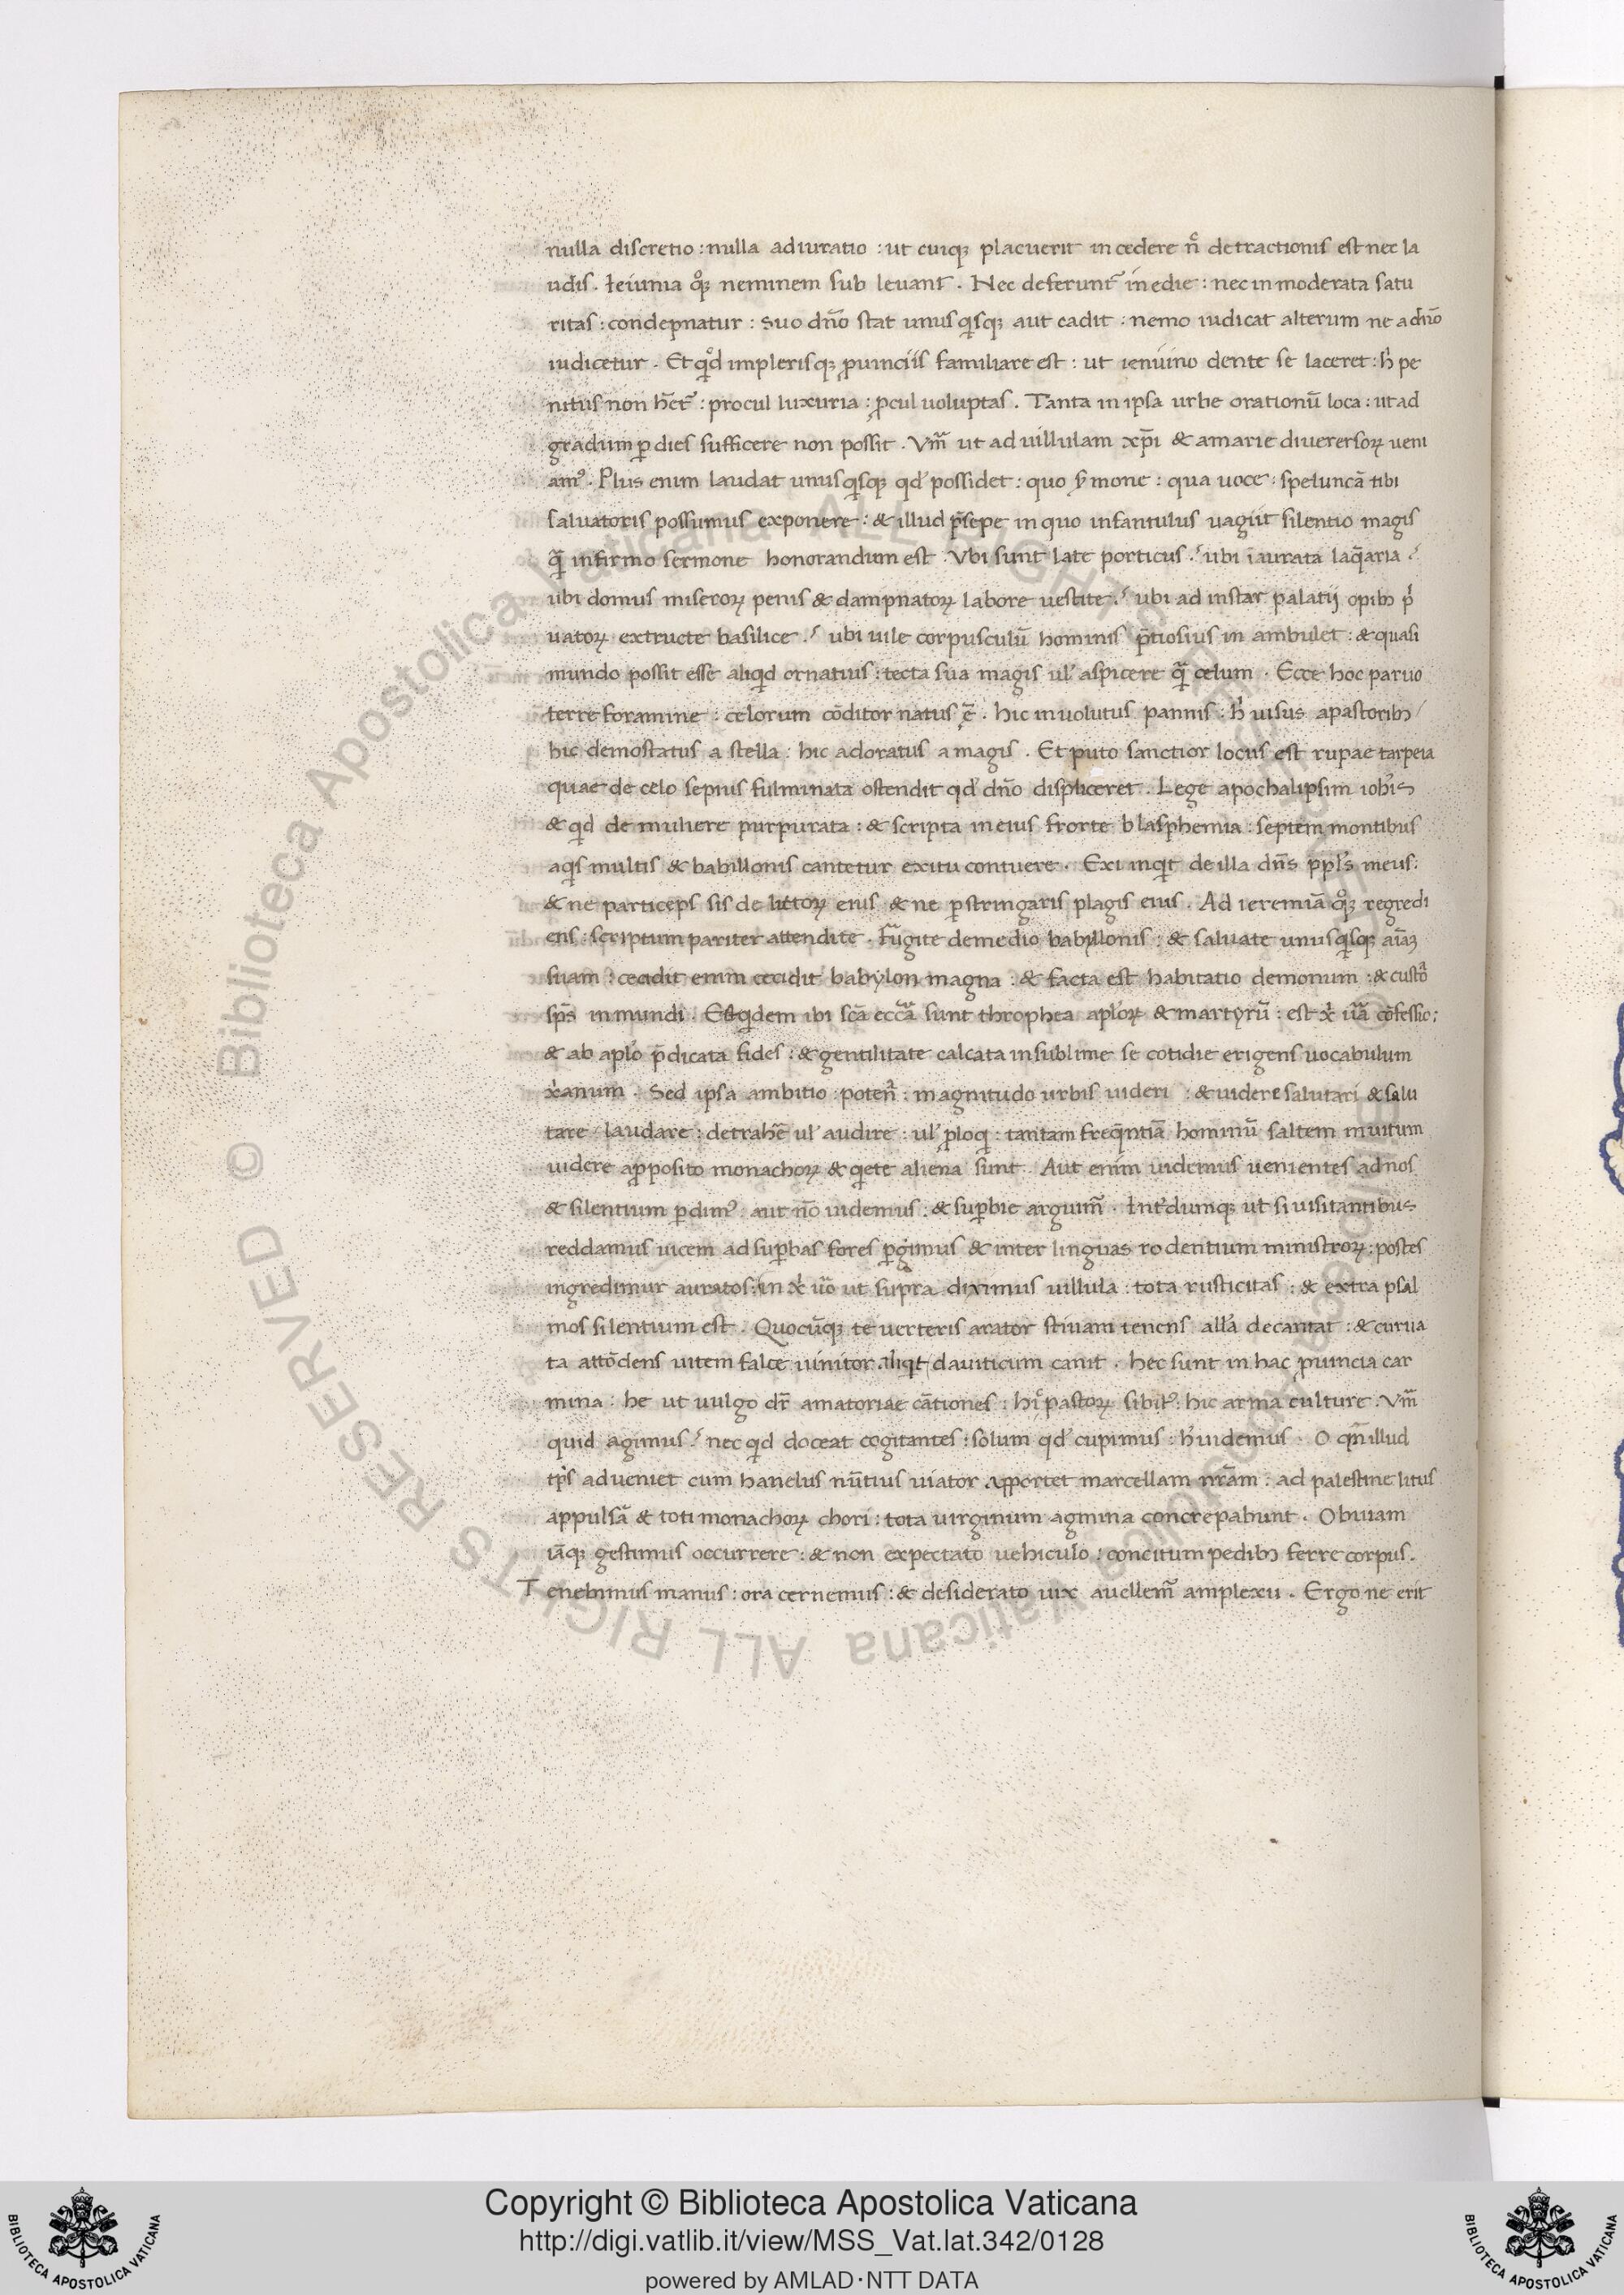 nulla discretio : nulla adiuratio : ut cuiqꝫ placuerit in cedere n̊ detractionis est nec la
udis . Ieiunia qͦꝫ neminem sub leuant . Nec deferunt᷑ inedie : nec in moderata satu
ritas : condepnatur : Suo dn̄o stat unus qͥsqꝫ aut cadit : nemo iudicat alterum ne a dn̄o
iudicetur . Et qͦd implerisqꝫ ꝓuinciis familiare est : ut ienuino dente se laceret : h̓ pe
nitus non h̄et᷑ : procul luxuria : ꝓcul uoluptas . Tanta in ipsa urbe orationū loca : ut ad
gradum ꝑ dies sufficere non possit . Vm̃ ut ad uillulam xp̄i & amarie diuerersoꝝ ueni
am᷒ . Plus enim laudat unusqͥsqꝫ qd̓ possidet : quo ẏmone : qua uoce : speluncā tibi
saluatoris possumus exponere : & illud p̄sepe in quo infantulus uagiit silentio magis
qᷓ infirmo sermone honorandum est . Vbi sunt late porticus ? ubi īaurata laqᷓaria ?
ubi domus miseroꝝ penis & dampnatoꝝ labore uestite ? ubi ad instar palatij opibꝫ pͥ
uatoꝝ extructe basilice ? ubi uile corpusculū hominis p̄tiosius in ambulet : & quasi
mundo possit esse aliqͥd ornatius : tecta sua magis ul̓ aspicere qᷓ celum . Ecce hoc paruo
terre foramine : celorum cōditor natus ē . hic inuolutus pannis : h̓ uisus a pastoribꝫ /
hic demostatus a stella : hic adoratus a magis . Et puto sanctior locus est rupae tarpeia
quae de celo sepius fulminata ostendit qd̓ dn̄o displiceret . Lege apochalipsim ioh̓is
& qͥd de muliere purpurata : & scripta in eius frorte blasphemia : septem montibus
aqͥs multis & babillonis cantetur exitu contuere . Exi inqͥt de illa dn̄s pp̄ls̓ meus :
& ne particeps sis de lictoꝝ eius & ne ꝑstringaris plagis eius . Ad ieremiā qͦꝫ regredi
ens : scriptum pariter attendite . Fugite de medio babyllonis : & saluate unusqͥsqꝫ aīaꝫ
suam : cecidit enim cecidit babylon magna : & facta est habitatio demonum : & custo᷑
sp̄s inmundi . Est qͥdem ibi sc̄a ecc̄a sunt throphea apl̓oꝝ & martyrū : est xͥ ūa cōfessio :
& ab apl̓o p̄dicata fides : & gentilitate calcata in sublime se cotidie erigens uocabulum
xͥanum . Sed ipsa ambitio : poten᷑ : magnitudo urbis uideri : & uidere salutari & salu
tare : laudare : detrahē ul̓ audire : ul̓ ꝓloqͥ : tantam freqn̄tiā hominū saltem inuitum
uidere a ꝓposito monachoꝝ & qͥete aliena sunt . Aut enim uidemus uenientes ad nos
& silentium ꝑdim᷒ : aut nō uidemus : & suꝑbie arguim̃ . Int̓dumqꝫ ut si uisitantibus
reddamus uicem ad suꝑbas fores ꝑgimus & inter linguas rodentium ministroꝝ : postes
ingredimur auratos : in xͥ ūo ut supra diximus uillula : tota rusticitas : & extra psal
mos silentium est . Quocūqꝫ te uerteris arator stiuam tenens all̓a decantat : & curua
ta attōdens uitem falce uinitor aliqͥt / dauiticum canit . hec sunt in hac ꝓuincia car
mina : he ut uulgo dr̄ amatoriae cātiones : hiͨ pastoꝝ sibil᷒ : hic arma culture . Vm̃
quid agimus ? nec qͥd doceat cogitantes : solum qd̓ cupimus : h̓ uidemus . O qn̄ illud
tp̄s adueniet cum hanelus nūtius uiator apportet marcellam nr̄am : ad palestine litus
appulsā & toti monachoꝝ chori : tota uirginum agmina concrepabunt . Obuiam
iāqꝫ gestimus occurrere : & non expectato uehiculo : concitum pedibꝫ ferre corpus .
Tenebimus manus : ora cernemus : & desiderato uix auellem̃ amplexu . Ergo ne erit
© Biblioteca Apostolica Vaticana ALL RIGHTS RESERVED
Copyright © Biblioteca Apostolica Vaticana
http://digi.vatlib.it/view/MSS_Vat.lat.342/0128
powered by AMLAD·NTT DATA
BIBLIOTECA APOSTOLICA VATICANA
BIBLIOTECA APOSTOLICA VATICANA